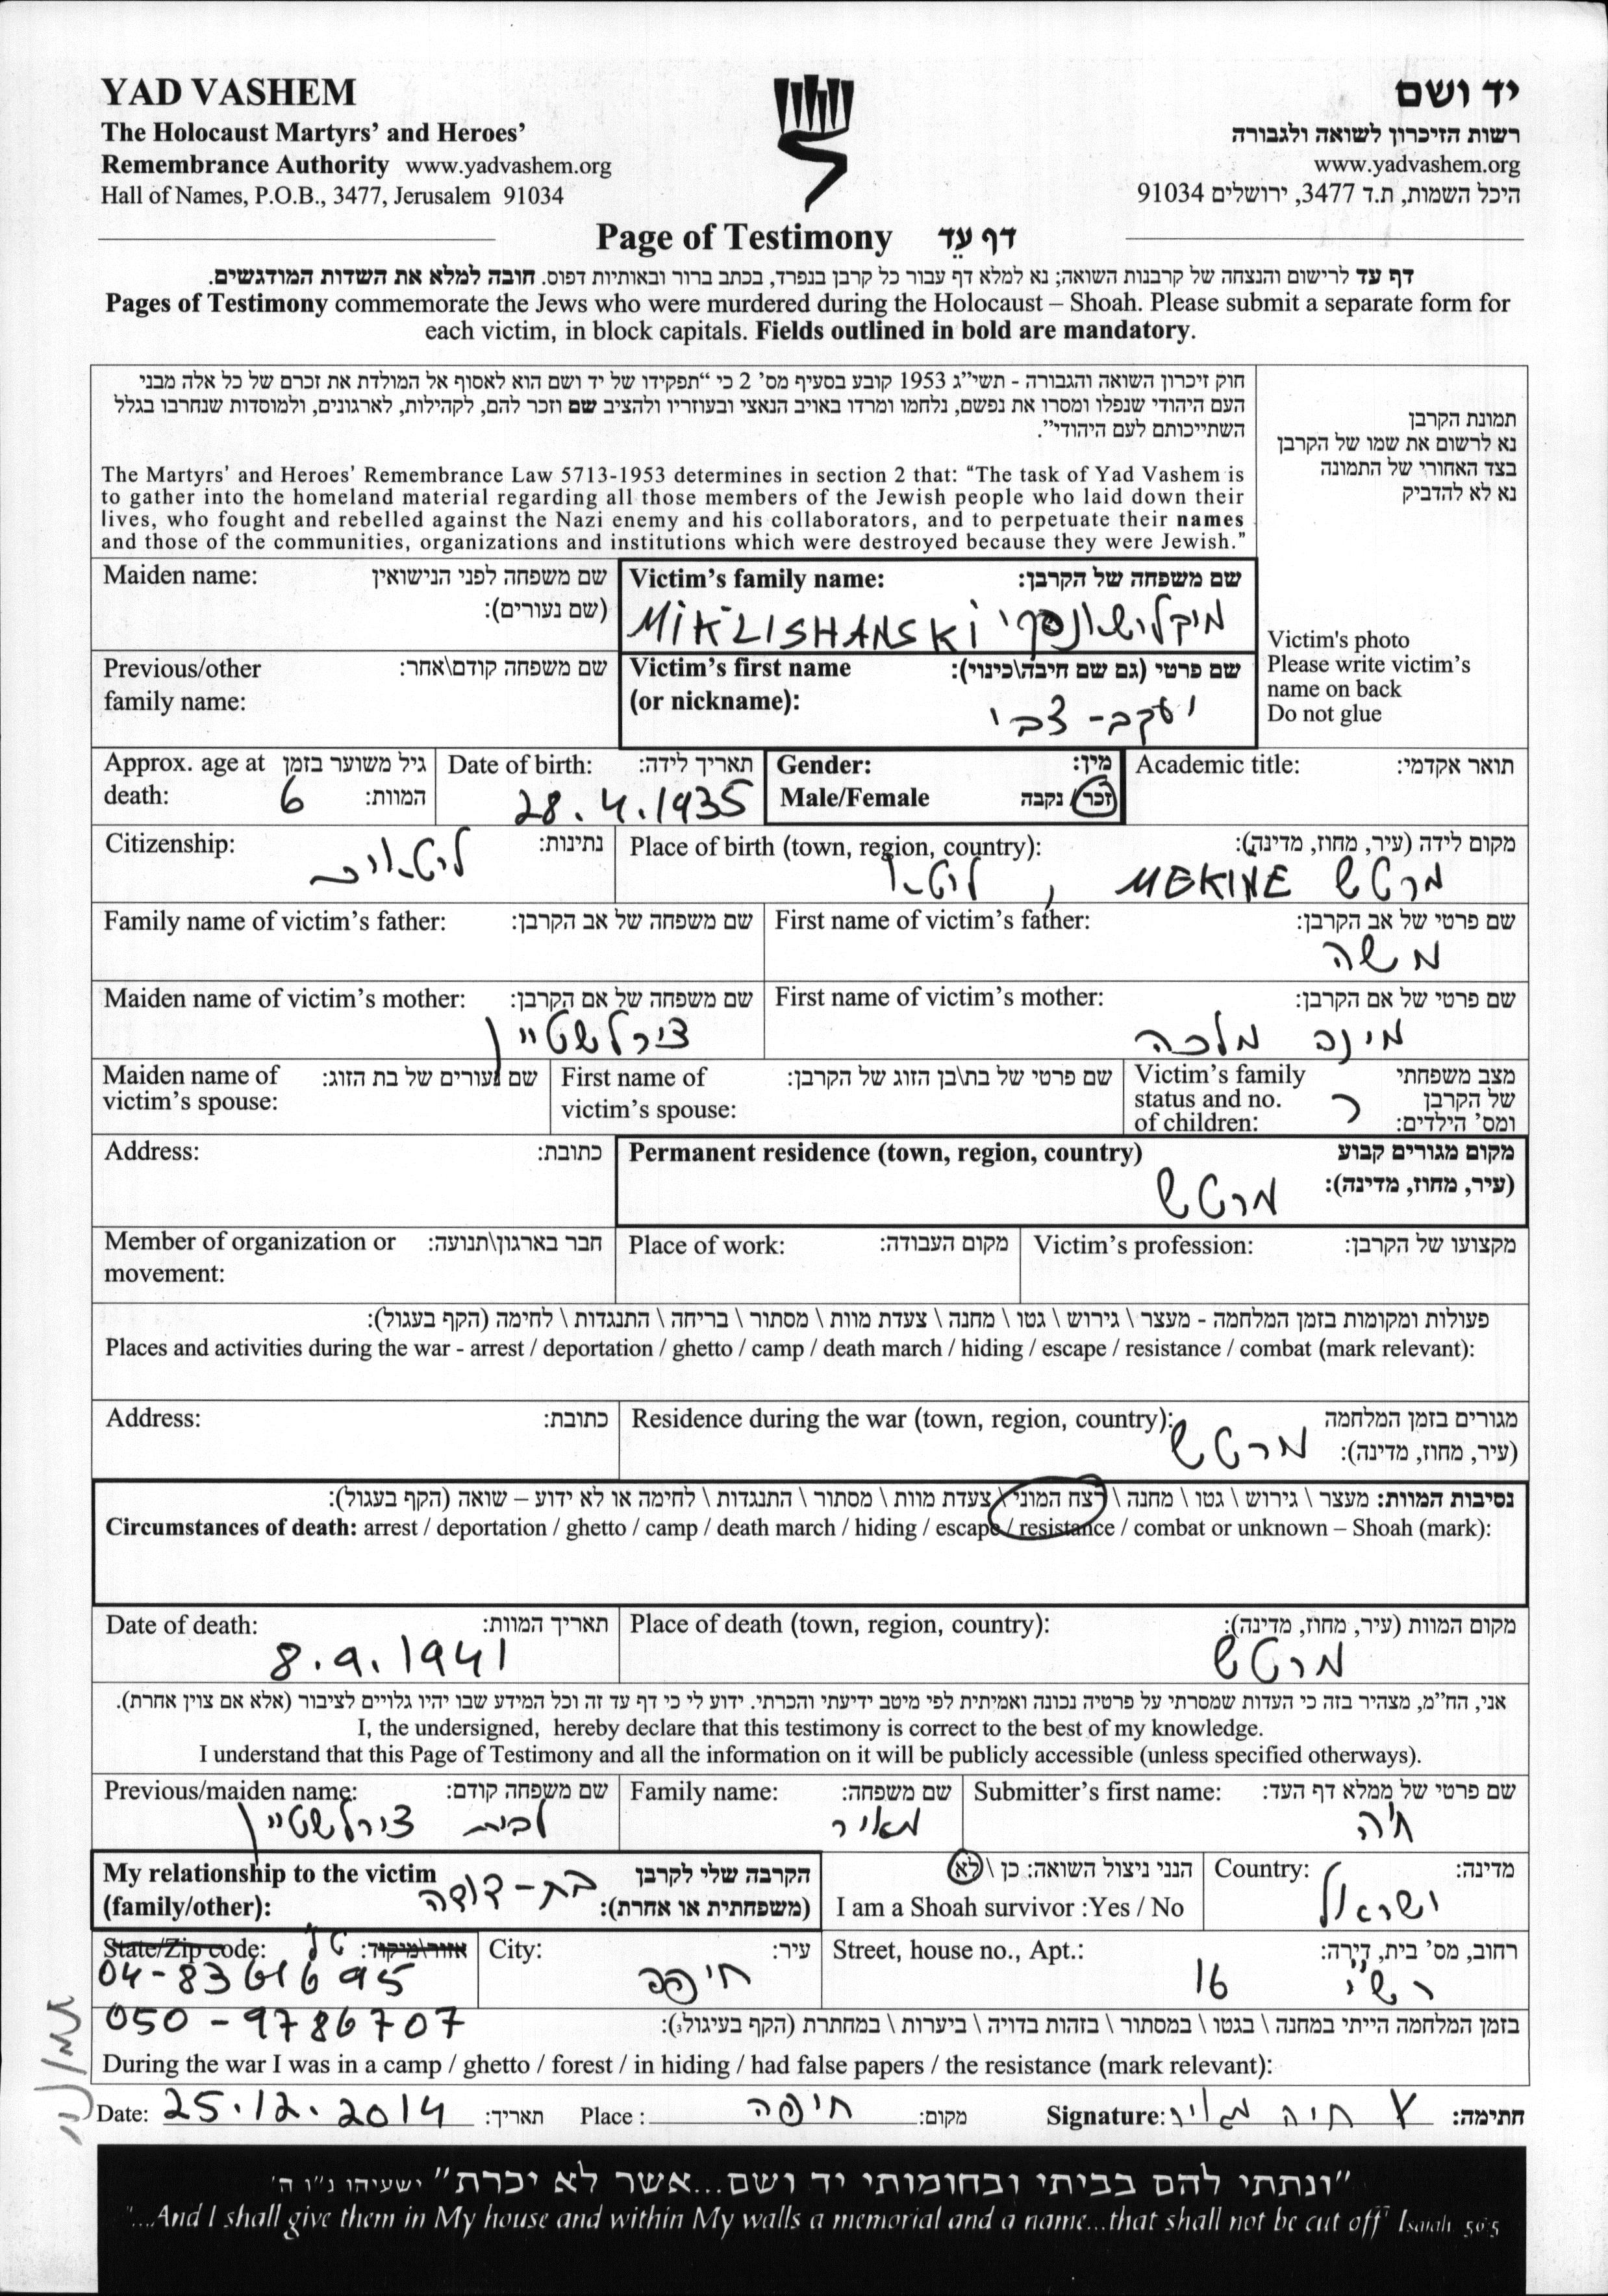 YAD VASHEM
The Holocaust Martyrs' and Heroes'
Remembrance Authority www.yadvashem.org
Hall of Names, P.O.B., 3477, Jerusalem 91034
יד ושם
רשות הזיכרון לשואה ולגבורה
www.yadvashem.org
היכל השמות, ת.ד 3477, ירושלים 91034
Page of Testimony דף עֵד
דף עד לרישום והנצחה של קרבנות השואה; נא למלא דף עבור כל קרבן בנפרד, בכתב ברור ובאותיות דפוס. חובה למלא את השדות המודגשים.
Pages of Testimony commemorate the Jews who were murdered during the Holocaust – Shoah. Please submit a separate form for
each victim, in block capitals. Fields outlined in bold are mandatory.
חוק זיכרון השואה והגבורה - תשי"ג 1953 קובע בסעיף מס' 2 כי "תפקידו של יד ושם הוא לאסוף אל המולדת את זכרם של כל אלה מבני
העם היהודי שנפלו ומסרו את נפשם, נלחמו ומרדו באויב הנאצי ובעוזריו ולהציב שם וזכר להם, לקהילות, לארגונים, ולמוסדות שנחרבו בגלל
השתייכותם לעם היהודי".
The Martyrs' and Heroes' Remembrance Law 5713-1953 determines in section 2 that: "The task of Yad Vashem is
to gather into the homeland material regarding all those members of the Jewish people who laid down their
lives, who fought and rebelled against the Nazi enemy and his collaborators, and to perpetuate their names
and those of the communities, organizations and institutions which were destroyed because they were Jewish."
תמונת הקרבן
נא לרשום את שמו של הקרבן
בצד האחורי של התמונה
נא לא להדביק
Victim's photo
Please write victim's
name on back
Do not glue
Maiden name: שם משפחה לפני הנישואין
(שם נעורים):
Victim's family name: שם משפחה של הקרבן:
MIKLISHANSKI מיקלישנסקי
Previous/other שם משפחה קודם\אחר:
family name:
Victim's first name שם פרטי (גם שם חיבה\כינוי):
(or nickname): יעקב-צבי
Approx. age at גיל משוער בזמן
death: 6 המוות:
Date of birth: תאריך לידה:
28.4.1935
Gender: מין:
Male/Female זכר / נקבה
Academic title: תואר אקדמי:
Citizenship: ליטאית נתינות:
Place of birth (town, region, country): מקום לידה (עיר, מחוז, מדינה):
מרטש MEKINE, ליטא
Family name of victim's father: שם משפחה של אב הקרבן:
First name of victim's father: שם פרטי של אב הקרבן:
משה
Maiden name of victim's mother: שם משפחה של אם הקרבן:
צירלשטיין
First name of victim's mother: שם פרטי של אם הקרבן:
מינה מלכה
Maiden name of שם נעורים של בת הזוג:
victim's spouse:
First name of שם פרטי של בת\בן הזוג של הקרבן:
victim's spouse:
Victim's family מצב משפחתי
status and no. ר של הקרבן
of children: ומס' הילדים:
Address: כתובת:
Permanent residence (town, region, country) מקום מגורים קבוע
(עיר, מחוז, מדינה): מרטש
Member of organization or חבר בארגון\תנועה:
movement:
Place of work: מקום העבודה:
Victim's profession: מקצועו של הקרבן:
פעולות ומקומות בזמן המלחמה - מעצר \ גירוש \ גטו \ מחנה \ צעדת מוות \ מסתור \ בריחה \ התנגדות \ לחימה (הקף בעגול):
Places and activities during the war - arrest / deportation / ghetto / camp / death march / hiding / escape / resistance / combat (mark relevant):
Address: כתובת:
Residence during the war (town, region, country): מגורים בזמן המלחמה
(עיר, מחוז, מדינה): מרטש
נסיבות המוות: מעצר \ גירוש \ גטו \ מחנה \ רצח המוני \ צעדת מוות \ מסתור \ התנגדות \ לחימה או לא ידוע – שואה (הקף בעגול):
Circumstances of death: arrest / deportation / ghetto / camp / death march / hiding / escape / resistance / combat or unknown – Shoah (mark):
Date of death: תאריך המוות:
8.9.1941
Place of death (town, region, country): מקום המוות (עיר, מחוז, מדינה):
מרטש
אני, הח"מ, מצהיר בזה כי העדות שמסרתי על פרטיה נכונה ואמיתית לפי מיטב ידיעתי והכרתי. ידוע לי כי דף עד זה וכל המידע שבו יהיו גלויים לציבור (אלא אם צוין אחרת).
I, the undersigned, hereby declare that this testimony is correct to the best of my knowledge.
I understand that this Page of Testimony and all the information on it will be publicly accessible (unless specified otherways).
Previous/maiden name: שם משפחה קודם:
לבית צירלשטיין
Family name: שם משפחה:
מאיר
Submitter's first name: שם פרטי של ממלא דף העד:
חיה
My relationship to the victim הקרבה שלי לקרבן
(family/other): בת-דודה (משפחתית או אחרת):
הנני ניצול השואה: כן \ לא
I am a Shoah survivor :Yes / No
Country: מדינה:
ישראל
State/Zip code: טל אזור\מיקוד:
04-8361695
050-9786707
City: עיר:
חיפה
Street, house no., Apt.: רחוב, מס' בית, דירה:
רש"י 16
בזמן המלחמה הייתי במחנה \ בגטו \ במסתור \ בזהות בדויה \ ביערות \ במחתרת (הקף בעיגול):
During the war I was in a camp / ghetto / forest / in hiding / had false papers / the resistance (mark relevant):
Date: 25.12.2014 תאריך: Place : חיפה מקום: Signature: חיה מאיר חתימה:
"ונתתי להם בביתי ובחומותי יד ושם...אשר לא יכרת" ישעיהו נ"ו ה'
"...And I shall give them in My house and within My walls a memorial and a name...that shall not be cut off" Isaiah 56:5